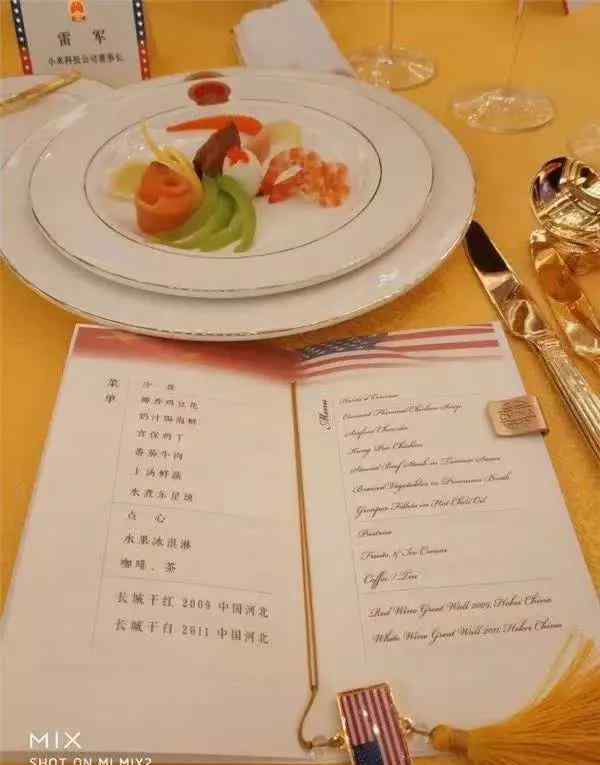 雷 军
小米科技公司董事长
菜单
冷 盘
椰香鸡豆花
奶汁焗海鲜
宫保鸡丁
番茄牛肉
上汤鲜蔬
水煮东星斑
点 心
水果冰淇淋
咖啡、茶
长城干红 2009 中国河北
长城干白 2011 中国河北
Menu
Coconut Flavored Chicken Soup
Kung Pao Chicken
Stewed Beef Steak in Tomato Sauce
Braised Vegetables in Consomme Broth
Grouper Fillets in Hot Chili Oil
Pastries
Fruits & Ice Cream
Coffee / Tea
Red Wine Great Wall 2009, Hebei China
White Wine Great Wall 2011, Hebei China
MIX
SHOT ON MI MIX2